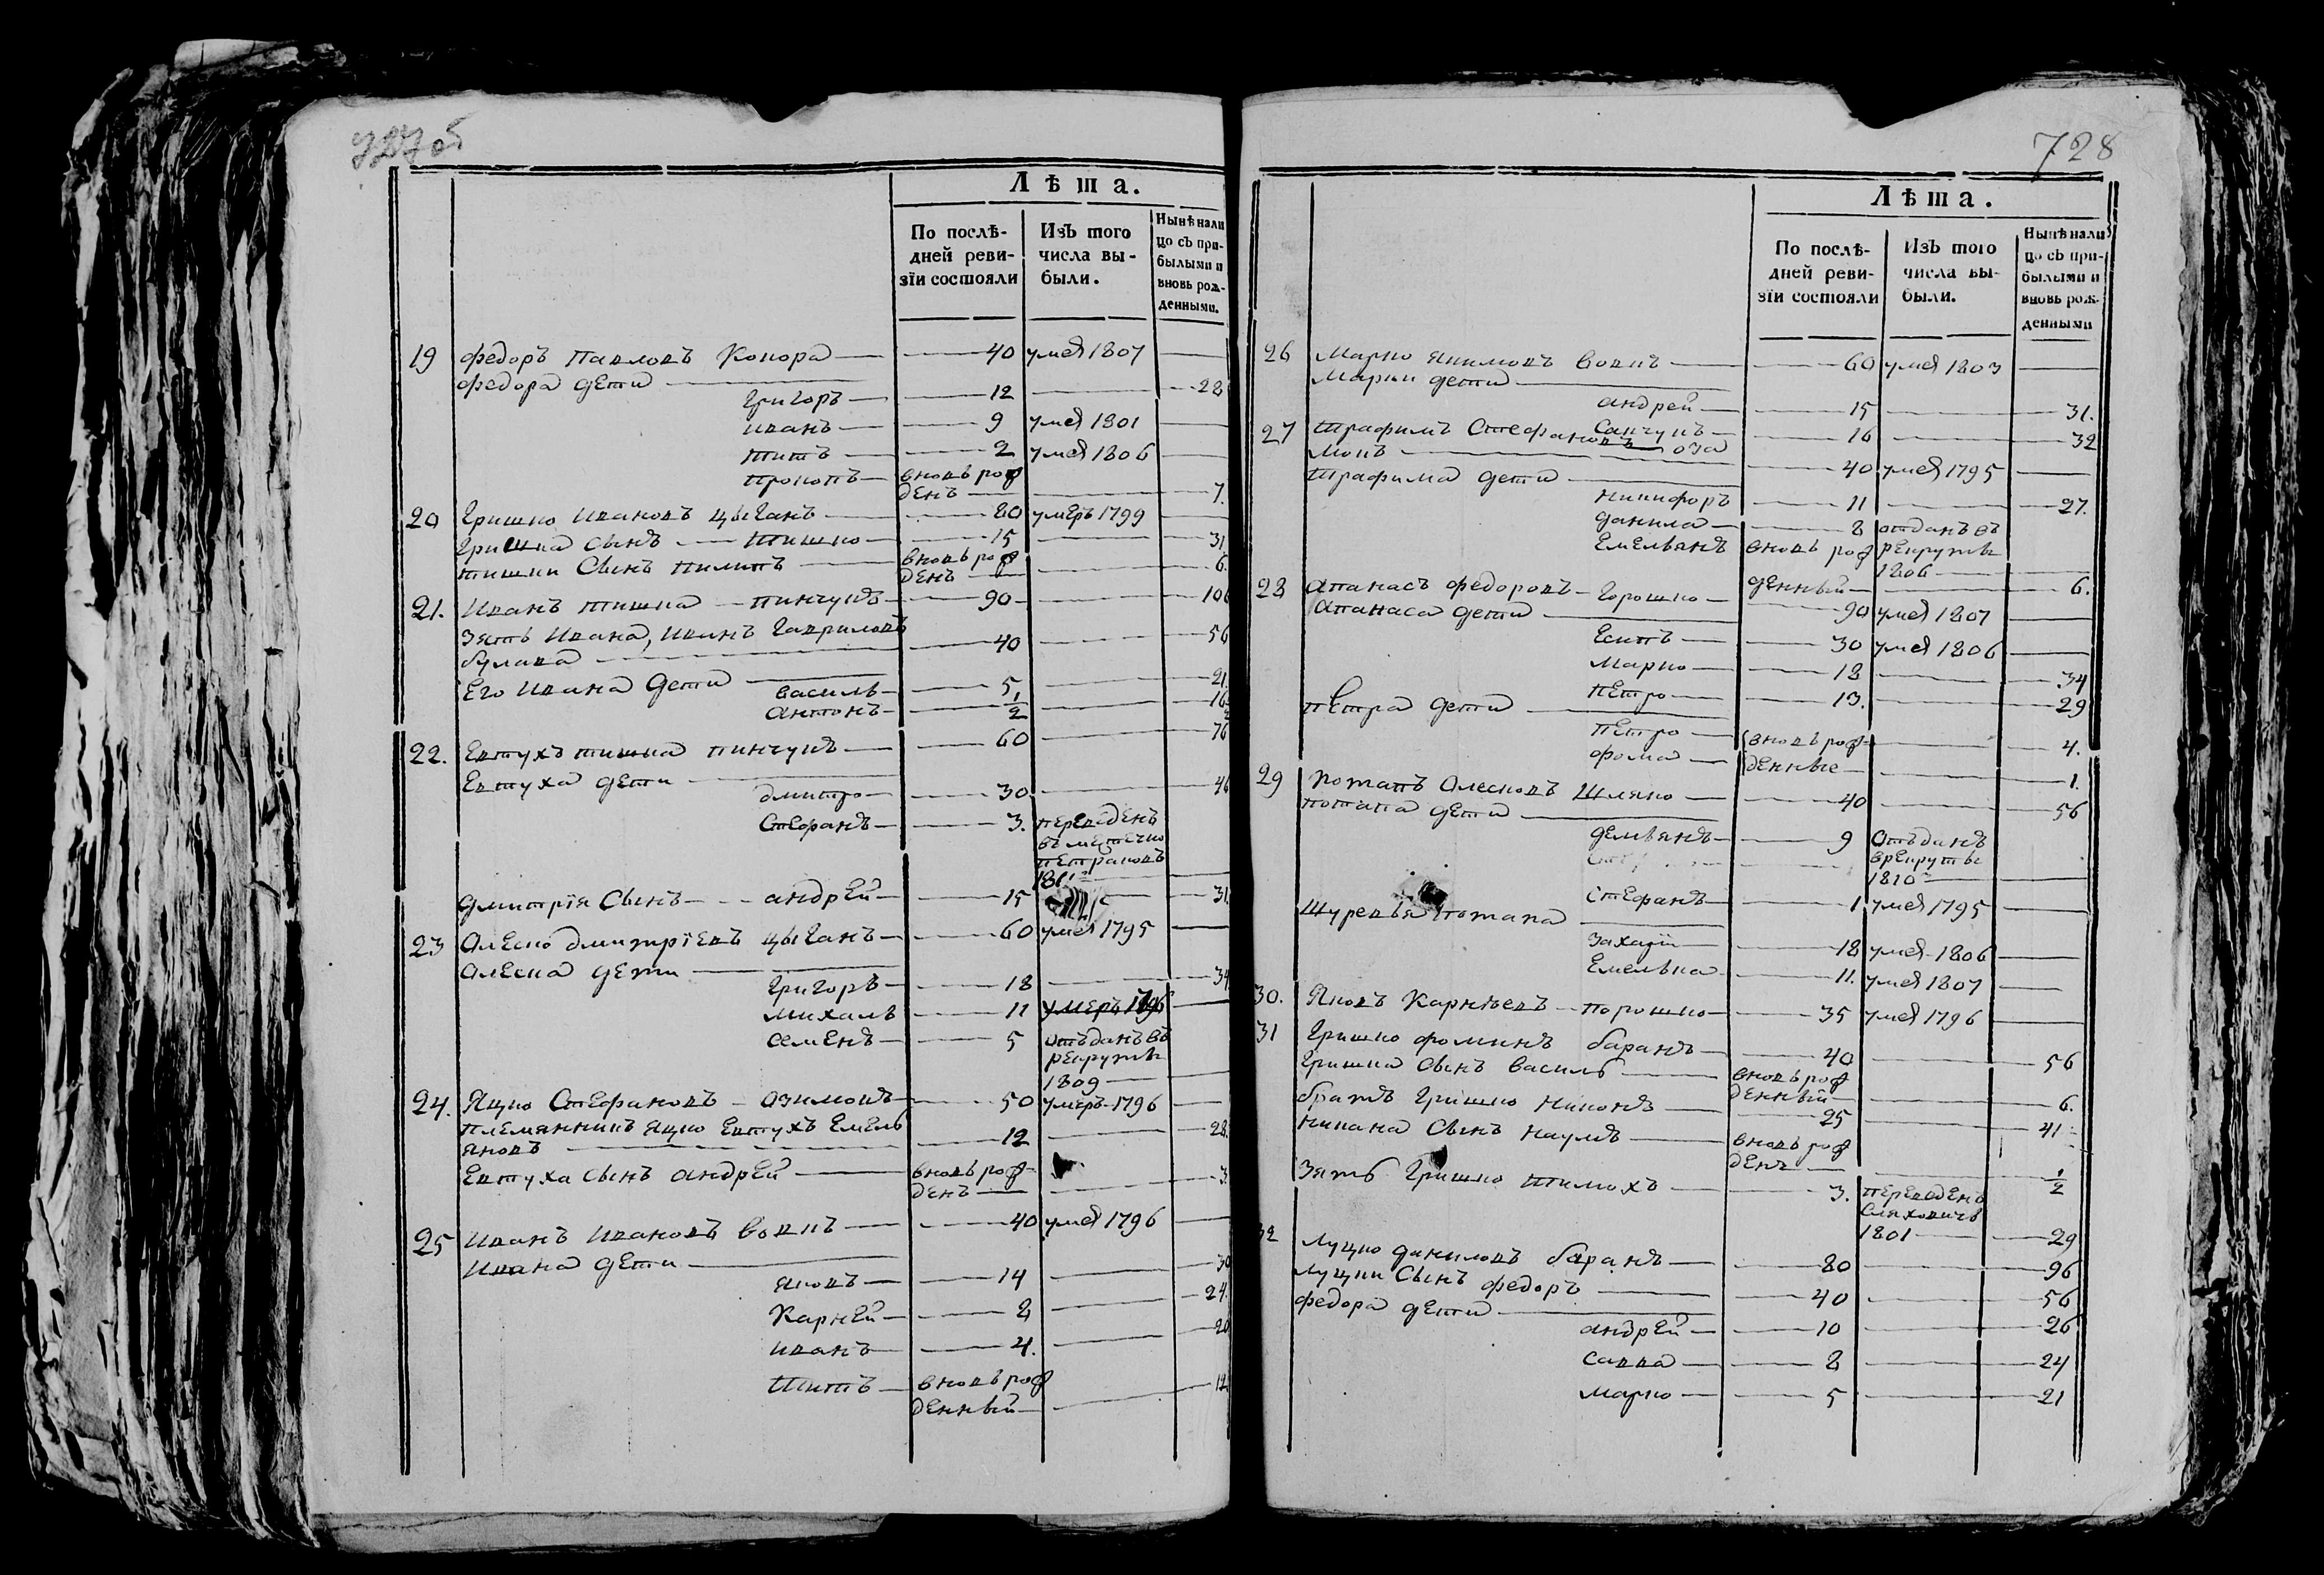 727об
Лѣта.
По послѣ-
дней реви-
зїи состояли
Изъ того
числа вы-
были.
Нынѣ нали
цо съ при-
былыми и
вновь рож-
денными.
19 Федоръ Павловъ Конора 40 умеръ 1807
Федора дети
Григоръ 12 28
Иванъ 9 умеръ 1801
Титъ 2 умеръ 1806
Прокопъ вновь рож
денъ 7.
20 Гришко Ивановъ Цыганъ 80 умеръ 1799
Гришка Сынъ Тишко 15 31
Тишки Сынъ Пилипъ вновь рож
денъ 6.
21. Иванъ Тишка Пинчукъ 90 106
Зять Ивана, Иванъ Гавриловъ
булава 40 56
Его Ивана дети Василь 5 21.
Антонъ 1/2 16
22. Евтухъ Тишка Пинчукъ 60 76
Евтуха дети
Дмитро 30. 46
Стефанъ 3. переведенъ
въ местечко
1811
Дмитрїя Сынъ Андрей 15 31
23 Олеско Дмитрїевъ Цыганъ 60 умеръ 1795
Олеска дети
Григоръ 18 34
Михаль 11 умеръ 1796
Семенъ 5 отъданъ въ
рекруты
1809
24. Яцко Стефановъ 50 умеръ 1796
Племянникъ Яцко Евтухъ Емель
яновъ 12 28.
Евтуха Сынъ Андрей вновь рож
денъ 3
25 Иванъ Ивановъ Вовкъ 40 умеръ 1796
Ивана дети
Яковъ 14 30
Карней 8 24.
Иванъ 4. 20
Титъ вновь рож
денный 12
728
Лѣта.
По послѣ-
дней реви-
зїи состояли
Изъ того
числа вы-
были.
Нынѣ нали
цо съ при-
былыми и
вновь рож-
денными
26 Марко Якимовъ Вовкъ 60 умеръ 1803
Марки дети
Андрей 15 31.
27 Трафимъ Стефановъ 16 32
40 умеръ 1795
Трафима дети
Никифоръ 11 27.
Данила 8 отданъ въ
Емельянъ вновь рож рекруты
1806
денный 6.
28 Апанасъ Федоровъ Горошко 90 умеръ 1807
Апанаса дети
Есипъ 30 умеръ 1806
Марко 18 34
Петро 13. 29
Петра дети
Петро вновь рож 4.
Фома денные 1.
29 Потапъ Олесковъ Шляко 40 56
Потапа дети
Демьянъ 9 Отъданъ
врекруты
1810
Стефанъ 1 умеръ 1795
Шуревья Потапа
Захарiи 18 умеръ 1806
Емелька 11. умеръ 1807
30. Яковъ Карнѣевъ Порошко 35 умеръ 1796
31 Гришко Фоминъ баранъ 40 56
Гришка Сынъ Василь вновь рож
денный 6.
братъ Гришко Никонъ 25 41
Никана Сынъ Наумъ вновь рож
денъ 1/2
Зять Гришко Тимохъ 3. переведенъ
1801 29
32 Луцко Даниловъ баранъ 80 96
Луцки Сынъ Федоръ 40 56
Федора дети
Андрей 10 26
Савка 8 24
Марко 5 21